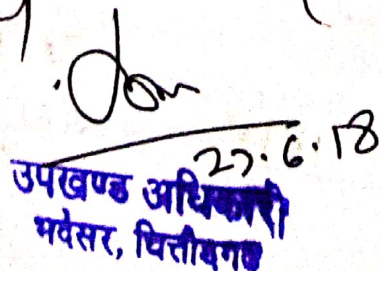 27.6.18
उपखण्ड अधिकारी
भदेसर, चित्तौड़गढ़